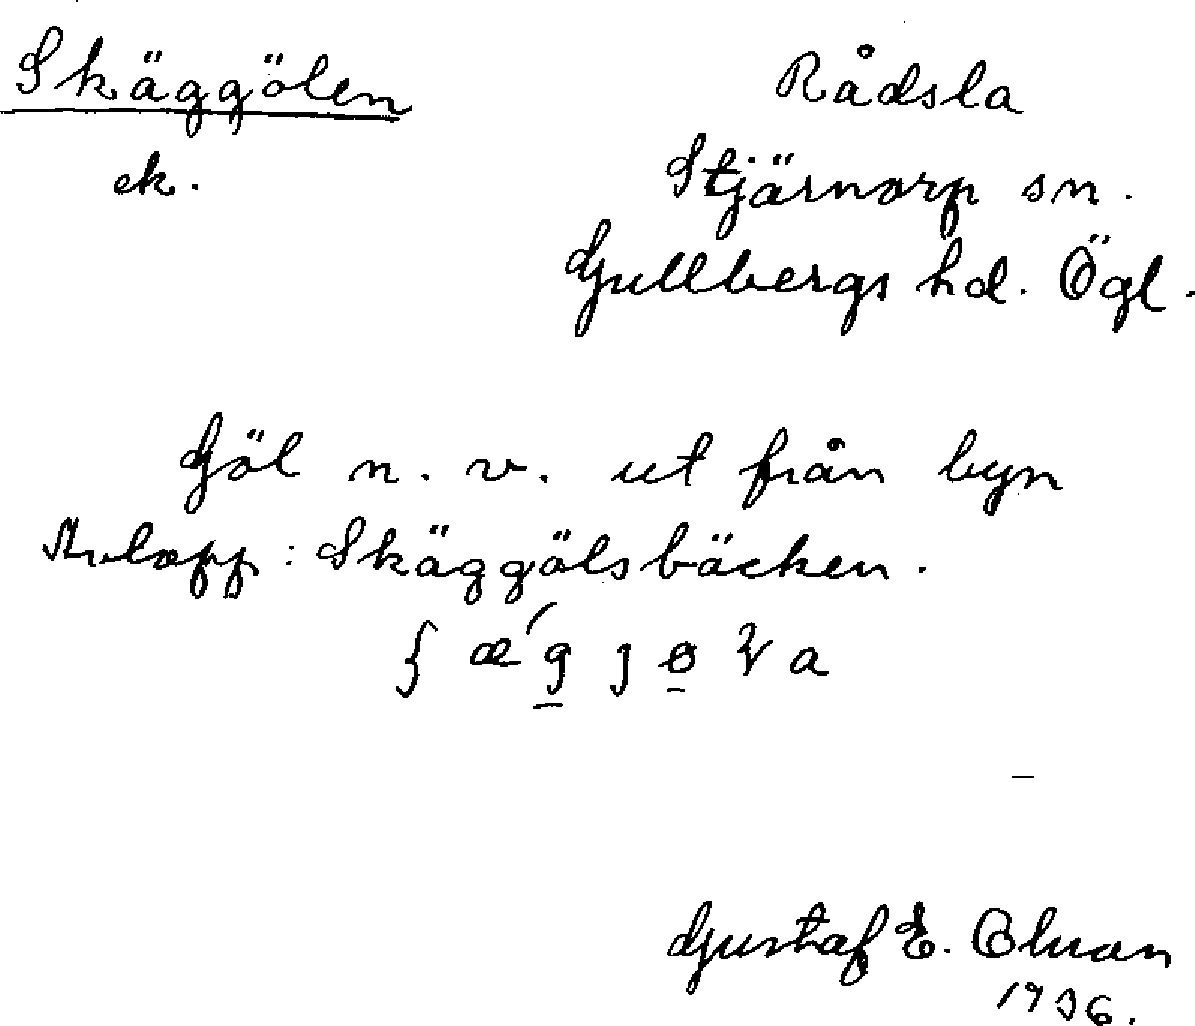 Skäggölen
ek.
Rådsla
Stjärnorp sn.
Gullbergs hd. Ögl.
Göl n. v. ut från byn
Avlopp: Skäggölsbäcken.
Gustaf E. Olson
1936.